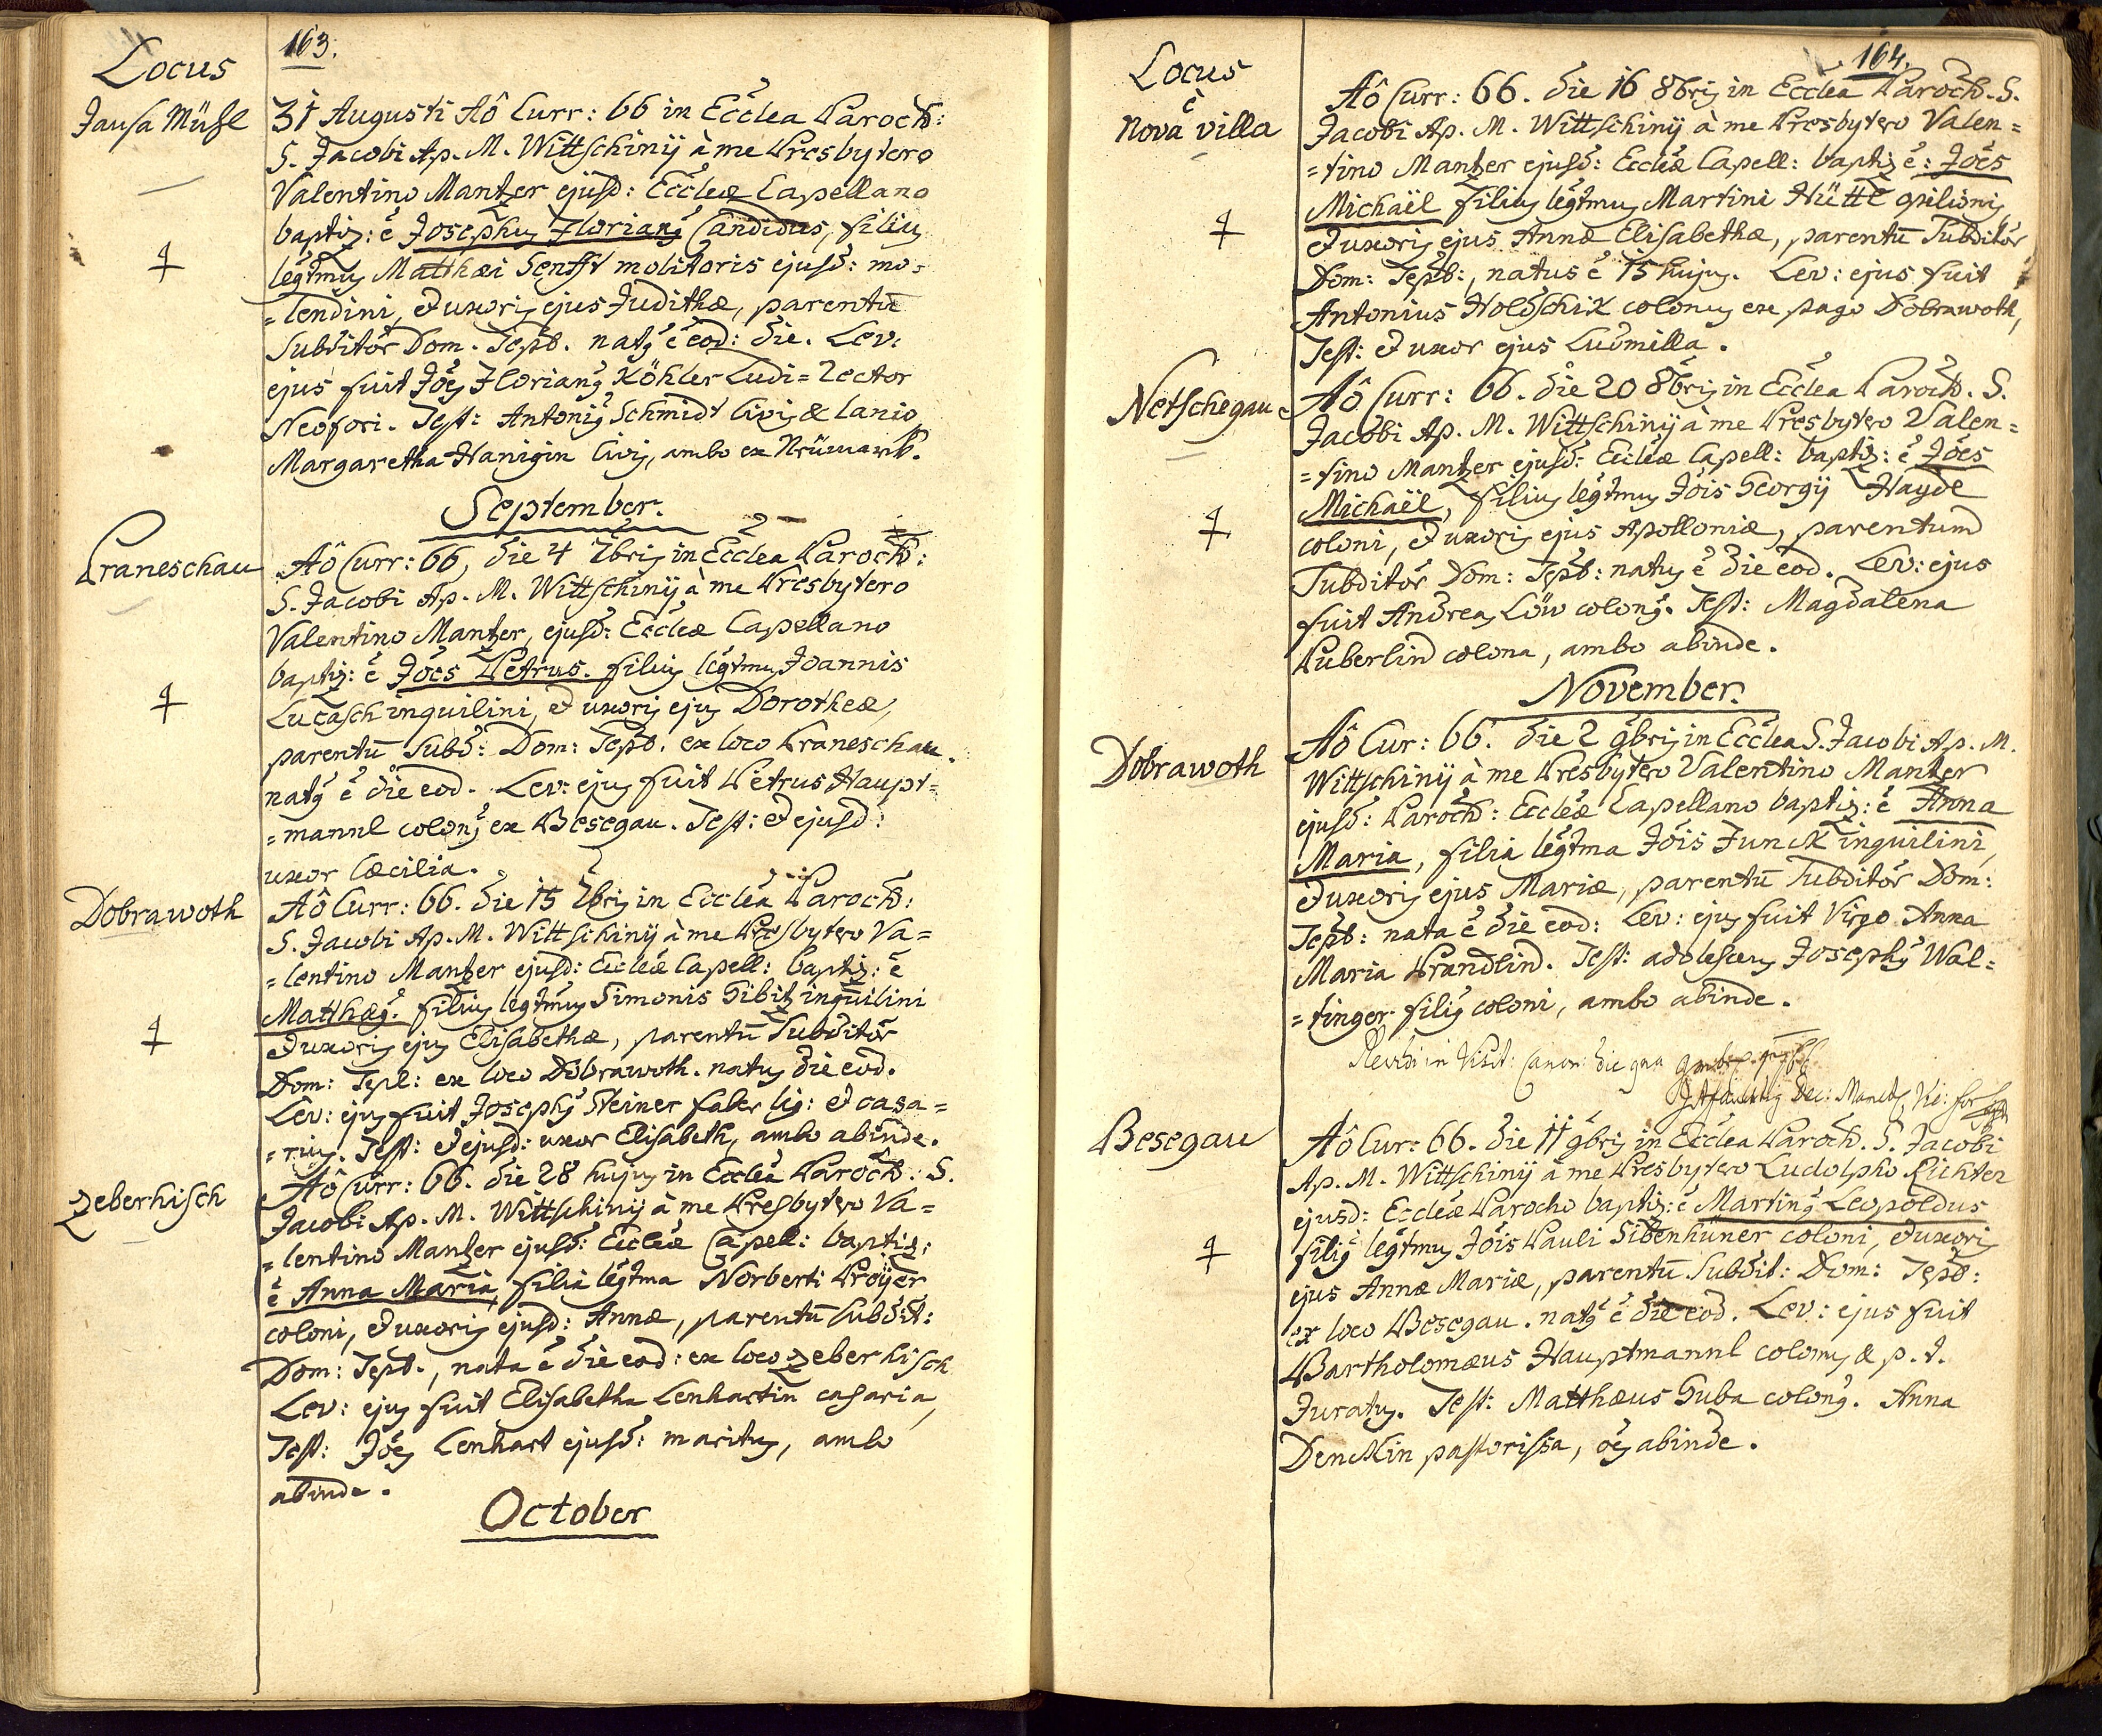 163.
Locus
Jansa Mühl
31 Augusti Aô Curr: 66 in Ecclea Paroch:
S. Jacobi Ap. M. Wittschinij à me Presbytero
Valentino Mantzer ejusd: Eccleæ Capellano
baptiz: ē Josephus Florianq Candidus, filius
legtmus Matthæi Senfft molitoris ejusd: mo=
=lendini, et uxoris ejus Judithæ, parentū
Subditor Dom. Tepl. natq ē eod: die. Lev:
ejus fuit Jöes Florianq Köhler Ludi=Rector
Neofori. Test: Antoniq Schmidt Civis & lanio
Margaretha Hanigin Civis, ambo ex Neümarck.
September.
Praneschau
Aô Curr: 66, die 4 7bris in Eccléa Paroch:
S. Jacobi Ap. M. Wittschinij à me Presbytero
Valentino Mantzer, ejusd: Eccleæ Capellano
baptiz: ē Jöes Petrus. filius legtmus Joannis
Lucasch inquilini, et uxoris ejus Dorotheæ,
parentū Subd: Dom: Tepl. ex loco Praneschau.
natq ē die eod. Lev: ejus fuit Petrus Haupt=
=mannl colonq ex Besegau. Test: et ejusd:
uxor Cæcilia.
Dobrawoth
Aô Curr: 66. die 15 7bris in Eccléa Paroch:
S. Jacobi Ap. M. Wittschinij à me Presbytero Va=
=lentino Mantzer ejusd: Eccleæ Capell: baptiz: ē
Matthæq. filius legtmus Simonis Sibitz inquilini
et uxoris ejus Elisabethæ, parentū Subditor
Dom: Tepl: ex loco Dobrawoth. natus die eod.
Lev: ejus fuit Josephq Steiner faber lig: et casa=
=rius. Test: et ejusd: uxor Elisabeth, ambo abinde.
Zeberhisch
Aô Curr: 66. die 28 hujus in Eccléa Paroch: S.
Jacobi Ap. M. Wittschinij à me Presbytero Va=
=lentino Mantzer ejusd: Eccleæ Capell: baptiz:
ē Anna Maria, filia legtma Norberti Proÿer
coloni, et uxoris ejusd: Annæ, parentū Subdit:
Dom: Tepl., nata ē die eod: ex loco Zeberhisch
Lev: ejus fuit Elisabetha Lenhartin casaria,
Test: Jöes Lenhart ejusd: maritus, ambo
abinde.
October
164.
Locus
è
Nova villa
Aô Curr: 66. die 16 8bris in Eccléa Paroch. S.
Jacobi Ap. M. Wittschinij à me Presbytero Valen=
=tino Mantzer ejusd: Eccleæ Capell: baptiz ē: Jöes
Michaël filius legtmus Martini Hüttl opilionis
et uxoris ejus Annæ Elisabethæ, parentū Subditor
Dom: Tepl:, natus ē 15 hujus. Lev: ejus fuit
Antonius Holdschik colonus ex pago Dobrawoth,
Test: et uxor ejus Ludmilla.
Netschegau
Aô Curr: 66. die 20 8bris in Eccléa Paroch. S.
Jacobi Ap. M. Wittschinij à me Presbytero Valen=
=tino Mantzer ejusd: Eccleæ Capell: baptiz: ē Jöes
Michaël, filius legtmus Jöis Georgij Hayde
coloni, et uxoris ejus Apolloniæ, parentum
Subditor Dom: Tepl: natus ē die eod. Lev: ejus
fuit Andreas Löw colonq. Test: Magdalena
Puberlin colona, ambo abinde.
November.
Dobrawoth
Aô Cur: 66. die 2 9bris in Eccléa S. Jacobi Ap. M.
Wittschinij à me Presbytero Valentino Mantzer
ejusd: Paroch: Eccleæ Capellano baptiz: ē Anna
Maria, filia legtma Jöis Junck inquilini,
et uxoris ejus Mariæ, parentū Subditor Dom:
Tepl: nata ē die eod: Lev: ejus fuit Virgo Anna
Maria Prandlin. Test: adolescens Josephq Wal=
=tinger filiq coloni, ambo abinde.
Revidi in Visit: Canon: die
Besegau
Aô Cur: 66. die 11 9bris in Eccléa Paroch. S. Jacobi
Ap. M. Wittschinij à me Presbytero Ludolpho Richter
ejusd: Eccleæ Parocho baptiz: ē Martinq Leopoldus
filiq legtmus Jöis Pauli Sibenhüner coloni, et uxoris
ejus Annæ Mariæ, parentū Subdit: Dom: Tepl:
ex loco Besegau. natq ē die eod. Lev: ejus fuit
Bartholomæus Hauptmannl colonus & p. t.
Juratus. Test: Matthæus Guba colonq. Anna
Denckin pastorissa, öes abinde.